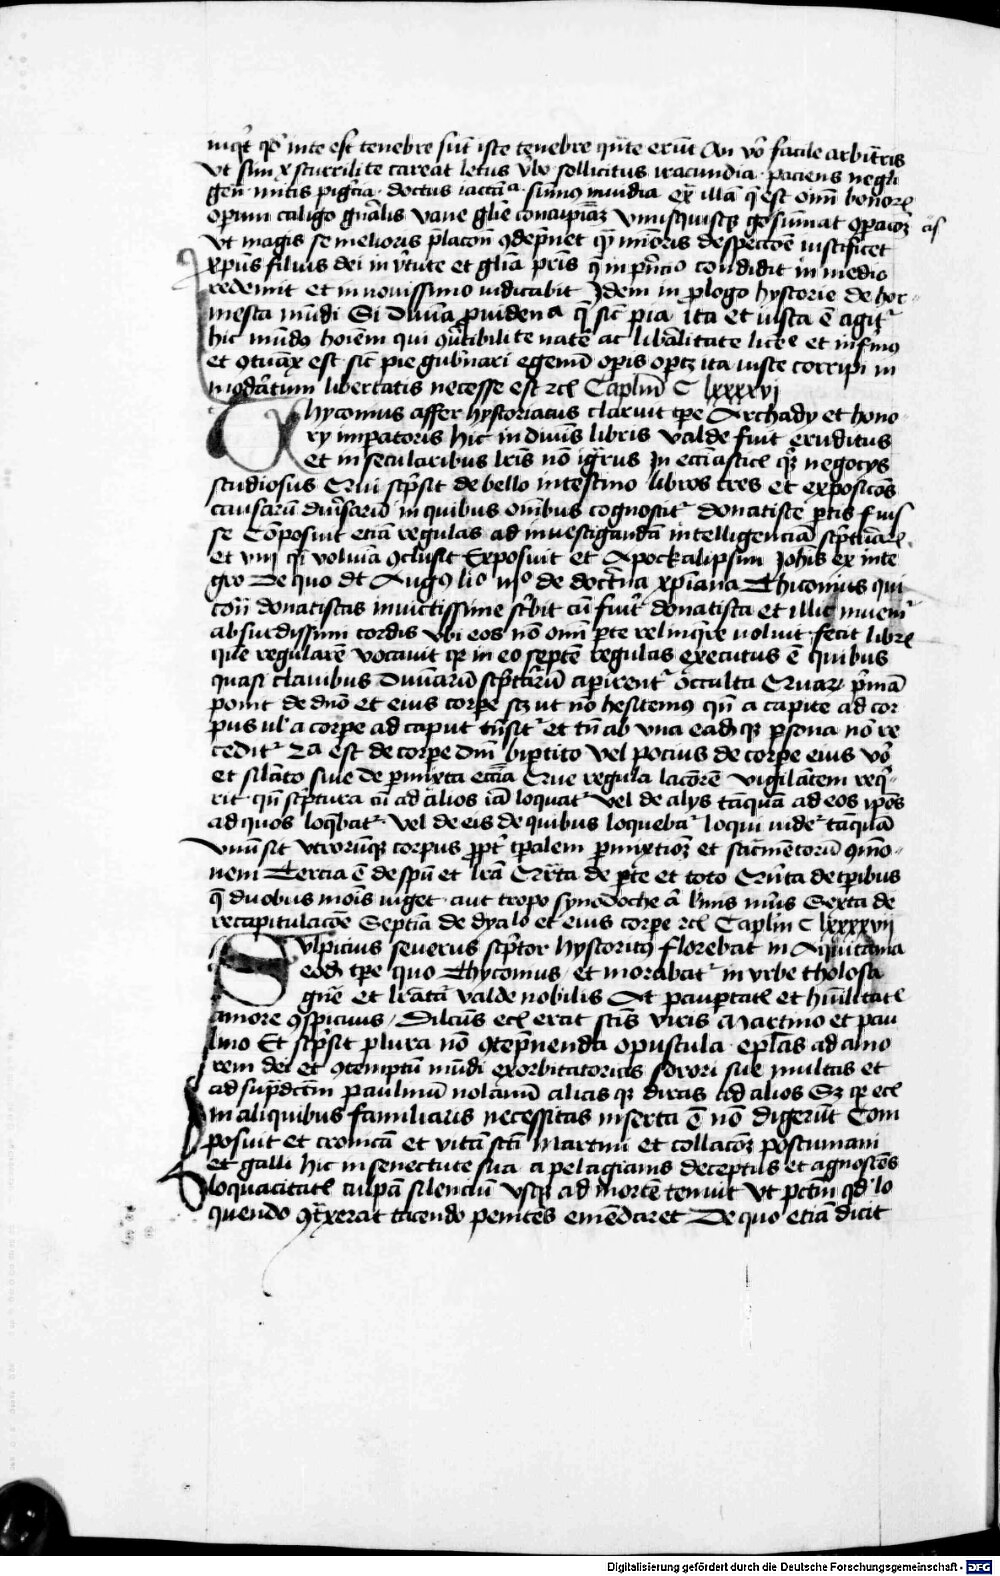 inqt qd inte est tenebre sut iste tenebre qnte erut An vo facile arbitris
vt sim x scurrilite careat letus vbo sollicitus iracundia paciens negli
gen mitis pigcia doctus iactan simus inuidia ex illa q est omi bonore
operum caligo gnalis vane glie vnusquisq go sumat opacoz
vt magis se melioris placom depnet q mioris despectoe iustificet
xpus filius dei in vtute et glia pris q in pncio condidit in medio
redemit et in nouissimo iudicabit Idem in plogo hystorie de hor
mesta mudi Si diuina puiden q sic pia ita et iusta e agit
hic mudus hoiem qui ouibili te nate ac libalitate et infimus
et est sic pie gubnari egenu opis optz ita iuste corripi in
modatum libertatis necesse est rcl Caplm C lxxxxvi
Thyconius affer hystoriacus claruit tpe Archady et hono
ry impatoris hic in diuis libris valde fuit eruditus
et in secularibus lris no igrus In ecciastic qz negocys
studiosus Qui scpsit de bello intestino libros tres et exposicoes
causaru diusaru in quibus omibus cognoscit donatiste ptis fuis
se Composuit etia regulas ad inuestiganda intelligencia scptuare
et viij qi volumia oclusit Exposuit et Apockalipsim Johis ex inte
gro De quo dt Augus lio iijo de doctna xpiana Thiconius qui
con donatistas inuictissime scbit cu fuit donatista et illic inuenit
absurdissimi cordis vbi eos no omi pte relinqre voluit fecit libre
que regulare vocauit qz in eo septe regulas executus e quibus
quasi clauibus diuinaru scptaru apirent occulta Quaru pma
ponit de dno et eius corpe scz ut no hesitemus qn a capite ad cor
pus ul a corpe ad caput tnsit et tn ab vna eadqz psona no re
cedit 2a est de corpe dni biptito vel pocius de corpe eius vo
et silato siue de pmixta eccia Que regula lacore vigilatem req
rit qn scptura cu ad alios ia loquat vel de alys taqua ad eos ipos
ad quos loqbat vel de eis de quibus loquebat loqui videt taqua
vnu sit vtrorumqz corpus ppt tpalem pmixtioz et scamentoru omo
nem Tercia e de spu et lra Qrta de pte et toto Quita de tpibus
q duobus mois viget aut tropo synodoche a mus Sexta de
recapitulacoe Septia de dyalo et eius corpe rcl Caplm C lxxxxvii
Sulpicius seuerus scptor hystoricus florebat in Aquitania
eod tpe quo Thyconius et morabat in vrbe tholosa
gne et lratu valde nobilis At paupertat et huilitat
amore ospicuus Dilcus ecl erat scis viris Martino et pau
lino Et scpsit plura no otepnenda opuscula eplas ad amo
rem dei et otemptu mudi exorbitatorias sorori sue multas et
ad supdcm paulinu nolanu alias qz diuas ad alios Sz qz ecl
in aliquibus familiaris necessitas inserta e no digerut Com
posuit et cronica et vita scti Martini et collacoz postumani
et galli hic in senectute sua a pelagianis deceptus et agnosces
loquacitat culpa silenciu vsqz ad morte tenuit vt pctm qd lo
quendo otxerat tacendo penites emedaret De quo etia dicit
Digitalisierung gefördert durch die Deutsche Forschungsgemeinschaft - DFG